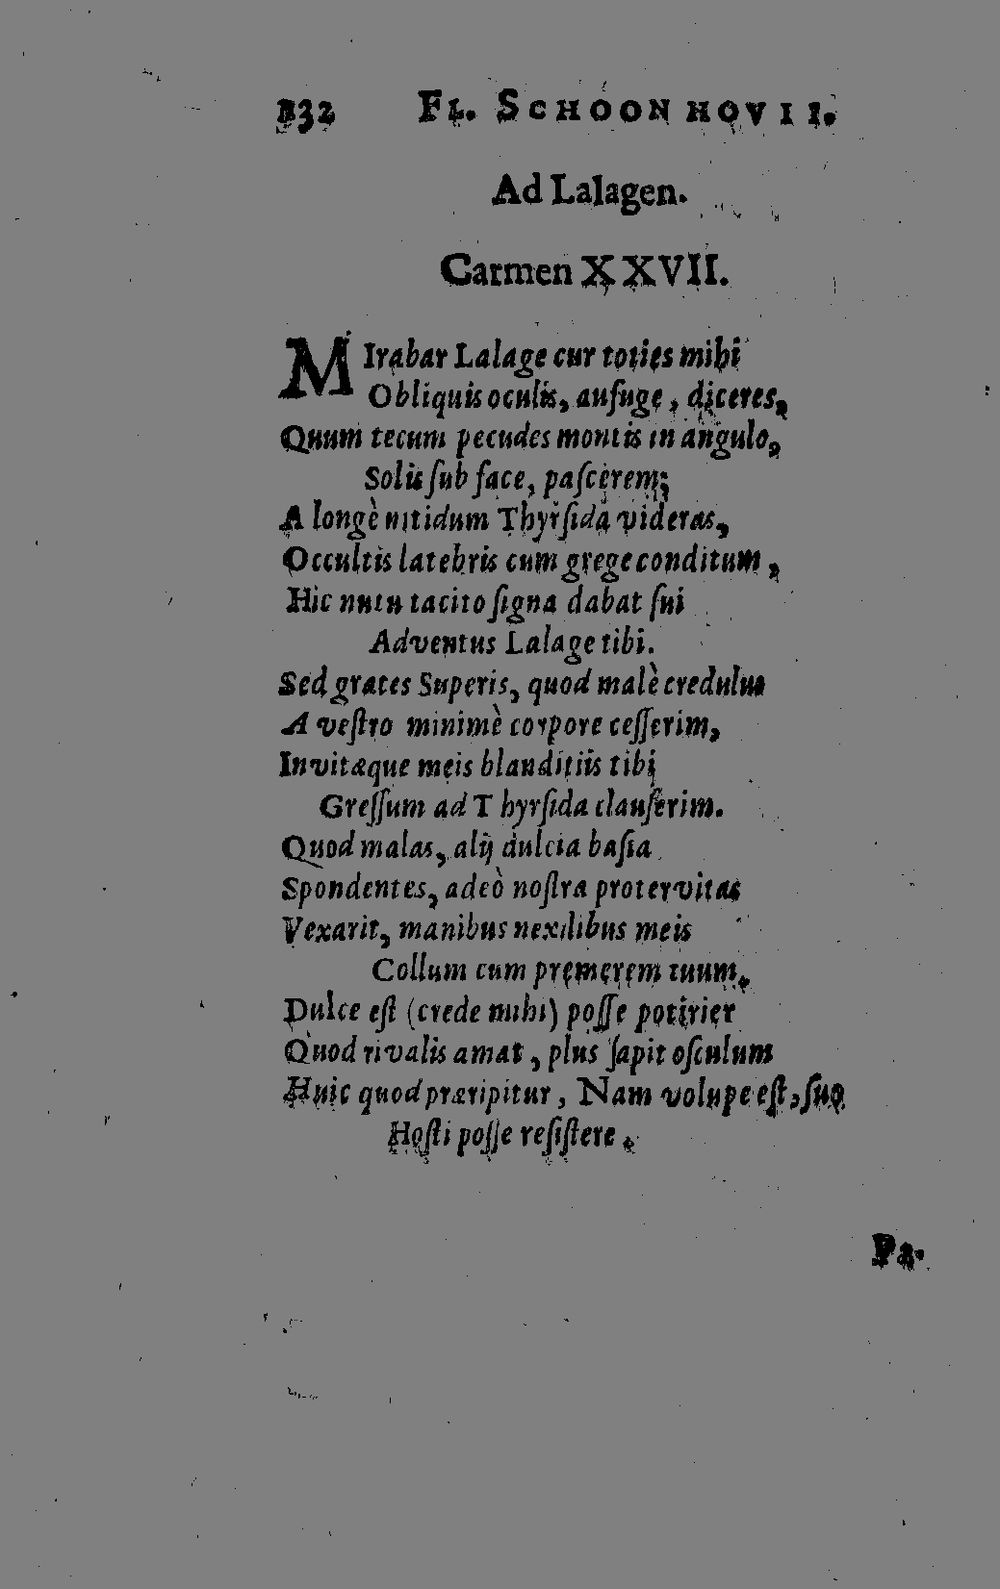 132 FL. SCHOONHOVII.
Ad Lalagen.
Carmen XXVII.
MIrabar Lalage cur toties mihi
Obliquis oculis, aufuge, diceres,
Quum tecum pecudes montis in angulo,
Solis ſub face, paſcerem;
A longè nitidum Thyrſida videras,
Occultis latebris cum grege conditum,
Hic nutu tacito ſigna dabat ſui
Adventus Lalage tibi.
Sed grates Superis, quod malè credulus
A veſtro minimè corpore ceſſerim,
Invitæque meis blanditiis tibi
Greſſum ad Thyrſida clauſerim.
Quod malas, alij dulcia baſia
Spondentes, adeò noſtra protervitas
Vexarit, manibus nexilibus meis
Collum cum premerem tuum.
Dulce eſt (crede mihi) poſſe potirier
Quod rivalis amat, plus ſapit oſculum
Huic quod præripitur, Nam volupe eſt, ſuo
Hoſti poſſe reſiſtere.
Pa-